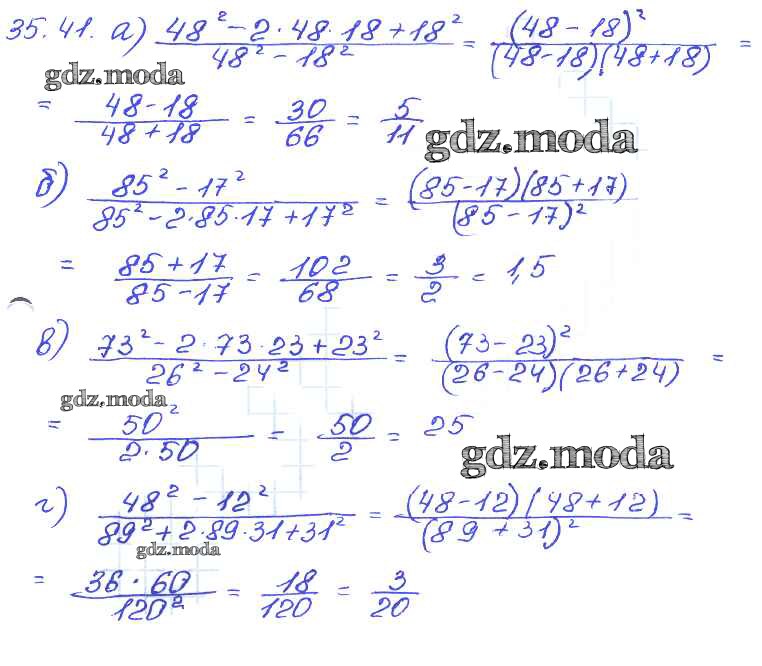 35.41. а) (48² - 2·48·18 + 18²)/(48² - 18²) = (48 - 18)²/((48-18)(48+18)) =
gdz.moda
= (48-18)/(48+18) = 30/66 = 5/11
gdz.moda
б) (85² - 17²)/(85² - 2·85·17 + 17²) = ((85-17)(85+17))/(85-17)²
= (85+17)/(85-17) = 102/68 = 3/2 = 1,5
в) (73² - 2·73·23 + 23²)/(26² - 24²) = (73-23)²/((26-24)(26+24)) =
gdz.moda
= 50²/(2·50) = 50/2 = 25
gdz.moda
г) (48² - 12²)/(89² + 2·89·31 + 31²) = ((48-12)(48+12))/(89+31)² =
gdz.moda
= (36·60)/120² = 18/120 = 3/20